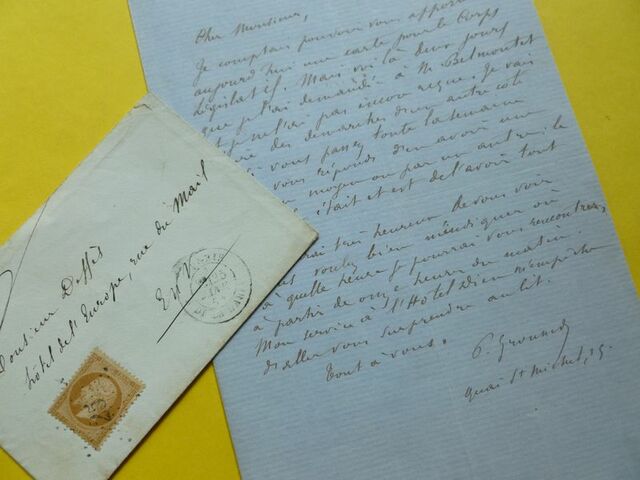 Cher Monsieur,
Je comptais pouvoir vous apporter
aujourd'hui une carte pour le Corps
Législatif. Mais voilà deux jours
que je l'ai demandée à M. Belmontet
et je ne l'ai pas encore reçue. Je vais
faire des démarches d'un autre côté
vous passez toute la semaine
vous réponds d'en avoir une
moyen ou par un autre : le
était et est de l'avoir tout
très heureux de vous voir
voulez bien m'indiquer où
à quelle heure je pourrai vous rencontrer,
à partir de onze heures du matin.
Mon service à l'Hôtel Dieu m'empêche
d'aller vous surprendre au lit.
Tout à vous.
P. Grousset
quai St Michel, 25.
Monsieur Deffès
hôtel de l'Europe, rue du Mail
E.V.